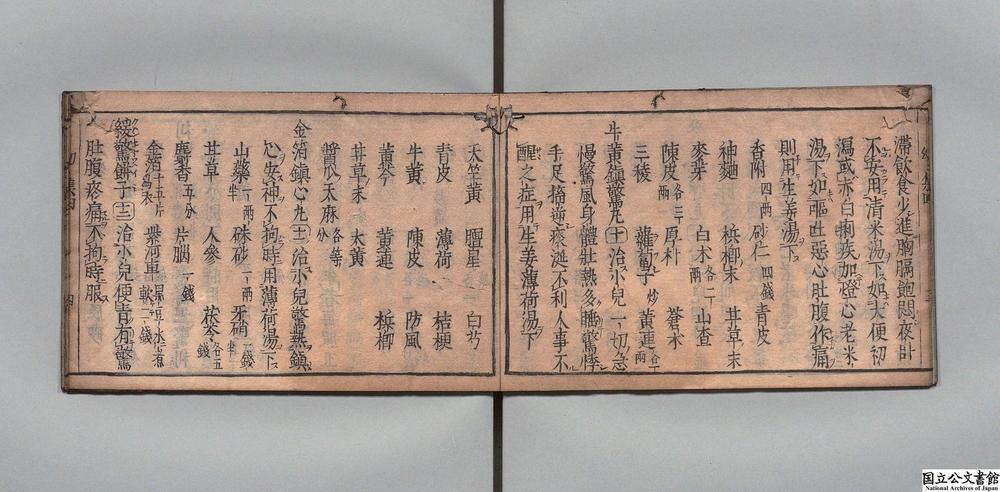 滯飲食少進胸膈飽悶夜卧
不安用清米湯下如大便初
瀉或赤白痢疾加燈心老米
湯下如嘔吐惡心肚腹作痛
則用生姜湯下
香附四兩 砂仁四錢 青皮
神麯 梹榔末 甘草末
麥芽 白术各二兩 山查
陳皮各三兩 厚朴 蒼术
三稜 蘿蔔子炒 黃連各一兩
牛黃鎮驚丸 十 治小兒一切急
慢驚風身體壯熱多睡驚悸
手足搐逆痰涎不利人事不
醒之症用生姜薄荷湯下
天竺黃 膽星 白芍
青皮 薄荷 桔梗
牛黃 陳皮 防風
黃芩 黃連 梹榔
甘草末 大黃
醬瓜 太麻各等分
金箔鎮心丸 十一 治小兒驚熱鎮
心安神不拘時用薄荷湯下
山藥一兩半 硃砂一兩 牙硝一兩半
甘草 人參 茯苓各五錢
麝香五分 片腦一錢
金箔十五片爲衣 紫河車黑豆水煮軟二錢
緩驚餅子 十二 治小兒便青有驚
肚腹疼痛不拘時服
国立公文書館
National Archives of Japan